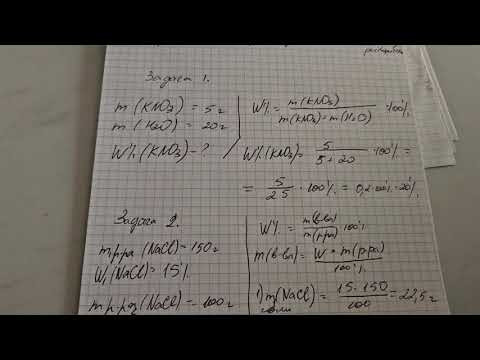 Задача 1.
m(KNO₃) = 5г
m(H₂O) = 20г
W%(KNO₃) - ?
W% = m(KNO₃) / m(KNO₃) + m(H₂O) · 100%
W%(KNO₃) = 5 / 5 + 20 · 100% =
= 5 / 25 · 100% = 0,2 · 100% = 20%
Задача 2.
m₁р-ра(NaCl) = 150г
W₁(NaCl) = 15%
m р-ра₂(NaCl) = 100г
W% = m(в-ва) / m(р-ра) · 100%
m(в-ва) = W · m(р-ра) / 100%
1) m(NaCl) = 15 · 150 / 100 = 22,5г
соли